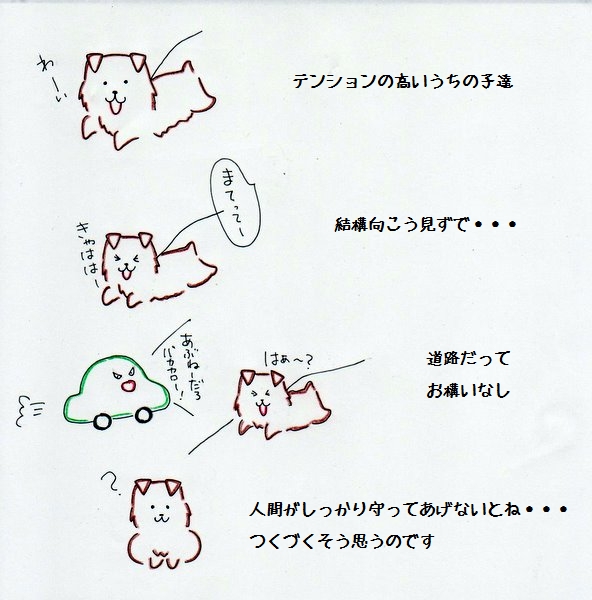 わーい
テンションの高いうちの子達
まてってー
きゃははー
結構向こう見ずで・・・
あぶねーだろ
バカヤロー！
はぁ～？
道路だって
お構いなし
?
人間がしっかり守ってあげないとね・・・
つくづくそう思うのです